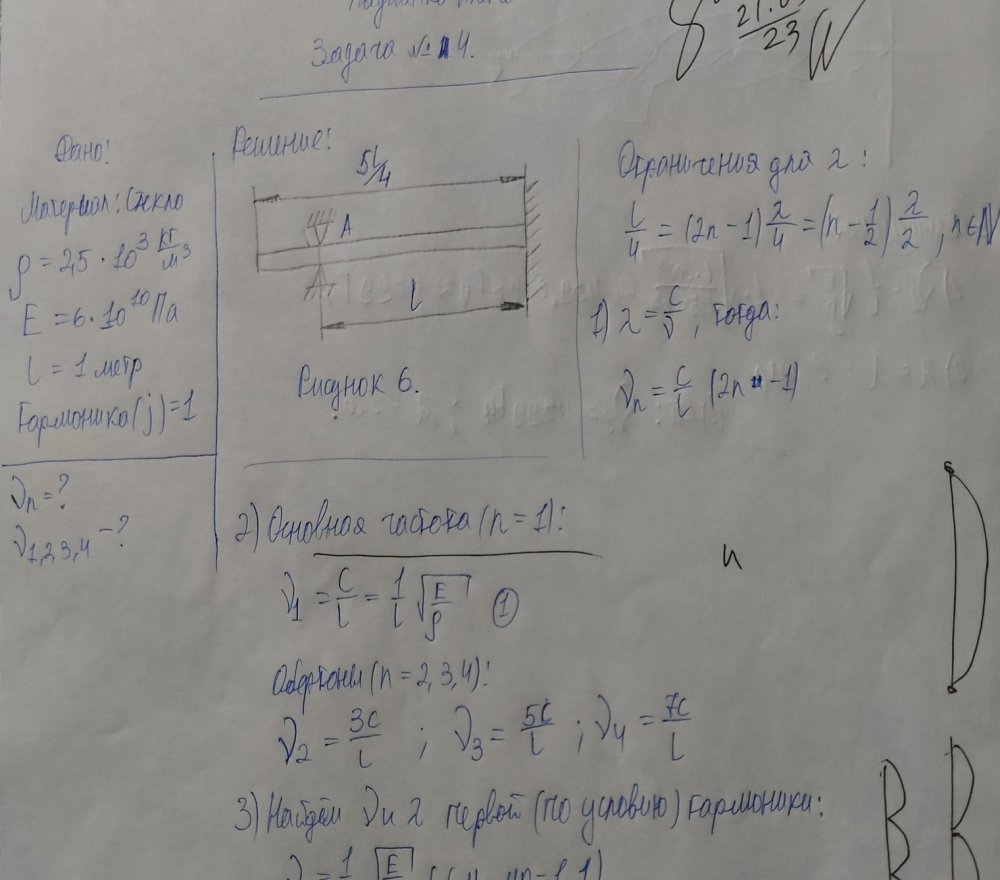 Задача № 4.
8
23
Дано:
Материал: Стекло
ρ = 2,5 · 10³ кг/м³
E = 6 · 10¹⁰ Па
l = 1 метр
Гармоника (j) = 1
νn = ?
ν1,2,3,4 – ?
Решение:
5l/4
A
l
Рисунок 6.
Ограничения для λ:
l/4 = (2n-1) λ/4 = (n - 1/2) λ/2, n∈N
1) λ = c/ν, тогда:
νn = c/l (2n -1)
2) Основная частота (n = 1):
ν1 = c/l = 1/l √(E/ρ) ①
Обертоны (n = 2, 3, 4):
ν2 = 3c/l ; ν3 = 5c/l ; ν4 = 7c/l
3) Найдём ν и λ первой (по условию) гармоники: